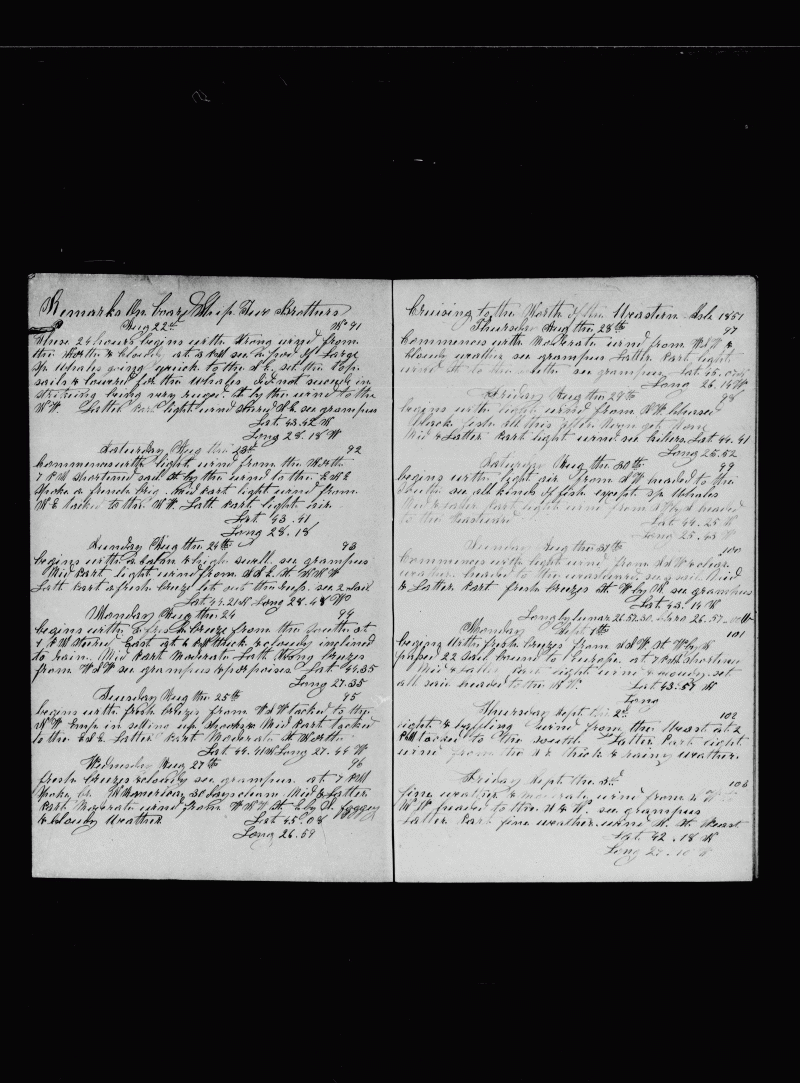 Remarks On board Ship Two Brothers
Aug 22th No 91
These 24 hours begins with strong wind from
the North & Cloudy at 3 PM see a pod of Large
Sp Whales going quick to the S E. set the top
sails & lowered for the Whales did not suceede in
striking being very ruged. St by the wind to the
N W. Latter Part light wind see grampus
Lat 43.42 N
Long 28.18 W
Saturday Aug the 23th 92
Commences with light wind from the North
7 PM shortened sail St by the wind to the E N E
Spoke a french Brig. Mid Part light wind from
N E tacked to the N W. Latt Part light air
Lat 43.41
Long 28.18
Sunday Aug the 24th 93
begins with a calm & high swell. see grampus
Mid Part Light wind from S S E. St W N W
Latt Part a fresh breeze see 2 Sail
Lat 44.21 N Long 28.48 W
Monday Aug the 24 94
begins with a fresh breeze from the South at
4 PM steered East at 6 PM thick & cloudy inclined
to rain. Mid Part Moderate Latt strong breezes
from W S W see grampus & porpoises Lat 44.35
Long 27.35
Tuesday Aug the 25th 95
begins with fresh breezes from W S W tacked to the
N W Emp in setting up Shooks Mid Part tacked
to the S S E Latter Part Moderate St North
Lat 44.41 N Long 27.44 W
Wednesday Aug 27th 96
fresh breezes & cloudy see grampus. at 7 PM
Spoke 30 days Mid & Latter
Part Moderate wind from W S W. St E by S. foggy
& cloudy Weather Lat 45.08
Long 26.59
Cruising to the North of the Western Isle 1851
Thursday Aug the 28th 97
Commences with Moderate wind from W S W &
Cloudy weather see grampus Latter Part light
wind St to the South see grampus Lat 45.07 N
Long 26.14 W
Friday Aug the 29th 98
begins with light wind from N W.
Black fish
Mid & Latter Part light wind see killers Lat 44.41
Long 25.52
Saturday Aug the 30th 99
begins with light air from S W headed to the
South see all kinds of fish except Sp Whales
Mid & Latter Part light wind from S W by S headed
to the Eastward Lat 44.25 N
Long 25.45 W
Sunday Aug the 31th 100
Commences with light wind from S S W & clear
weather headed to the westward. see a sail Mid
& Latter Part fresh breezes St W by N. see grampus
Lat 43.14 N
Long by lunar 26.51.30
Monday Sept 1th 101
begins With fresh breezes from S S W. St W by N
passed 22 Sail bound to Europe. at 7 PM shortened
Mid & Latter Part light wind & cloudy. set
all sail headed to the N W. Lat 43.57 N
Long
Thursday Sept the 2d 102
light & baffling wind from the West at 2
PM tacked to the South Latter Part light
wind from the S E thick & rainy weather.
Friday Sept the 3d 103
fine weather & moderate wind from
W N W headed to the S & W. see grampus
Latter Part fine weather. wind N. St. West
Lat 42.18 N
Long 27.10 W